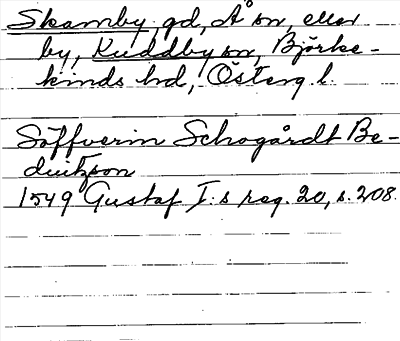 Skamby gd, Å sn, eller
by, Kuddby sn, Björke-
kinds hd, Österg l.
Söffverin Schogårdt Be-
dintzson
1549 Gustaf I:s reg. 20, s. 208.